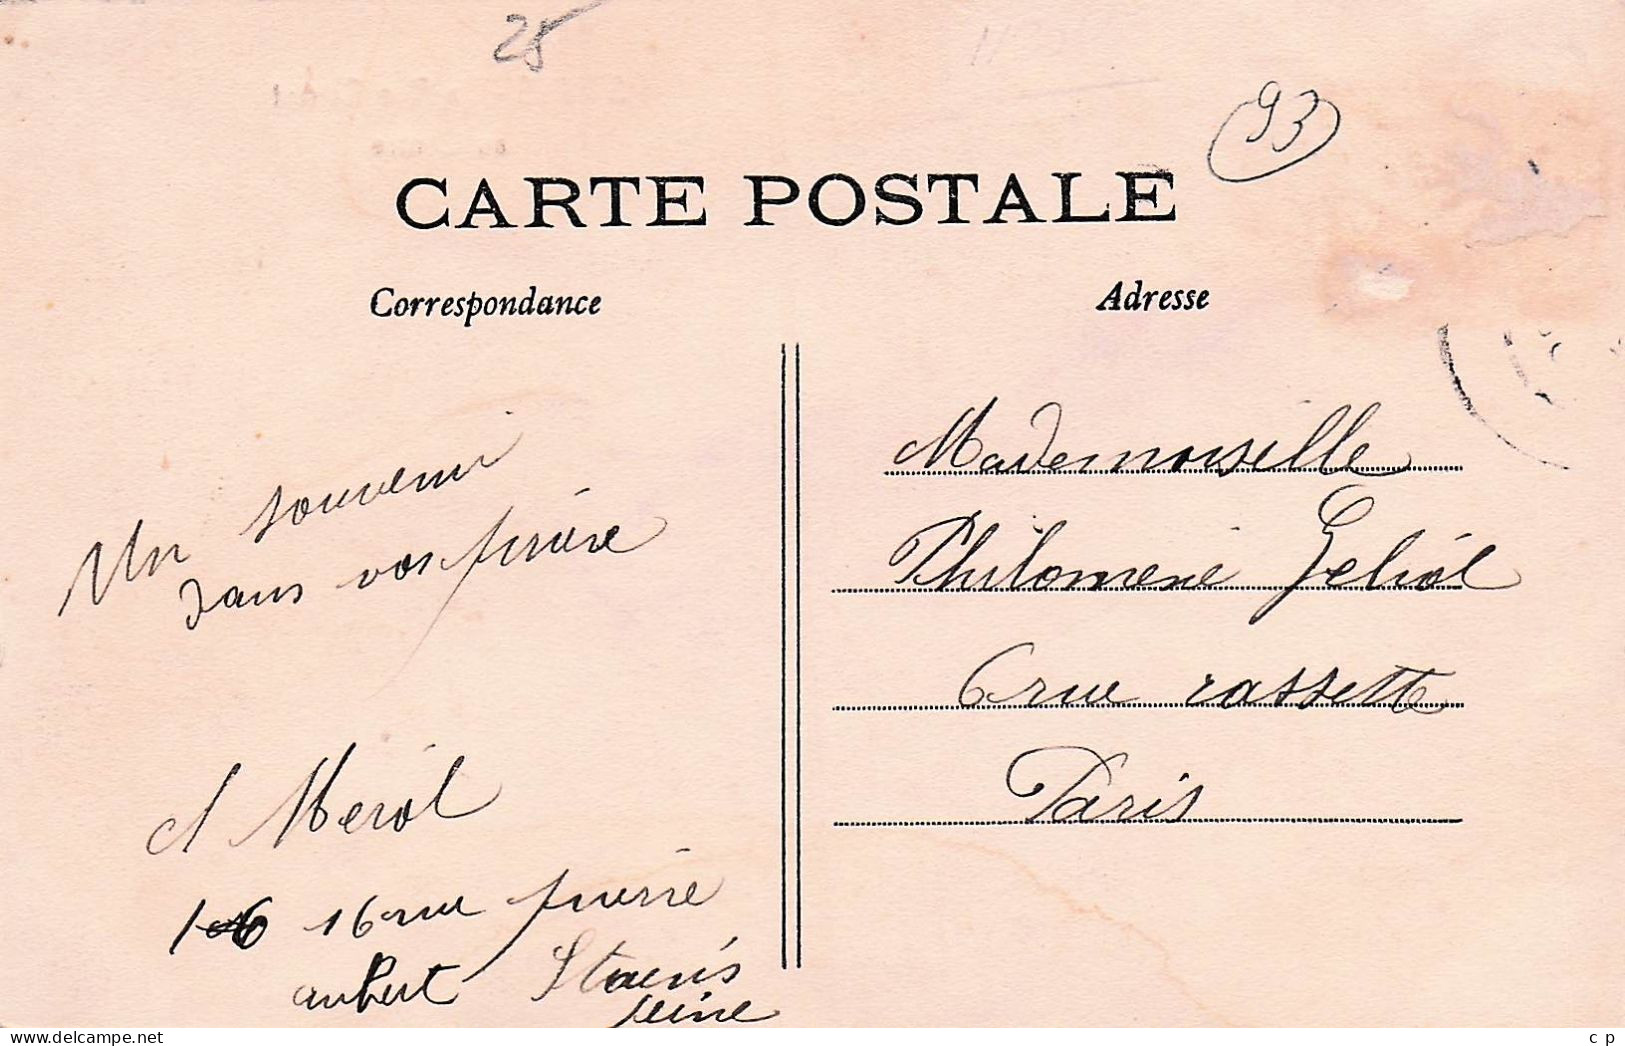 25
93
CARTE POSTALE
Correspondance
Adresse
Un souvenir
dans vos prière
A Merol
16 16 rue pierre
aubert Stains
seine
Mademoiselle
Philomene Geliol
6 rue cassette
Paris
c p